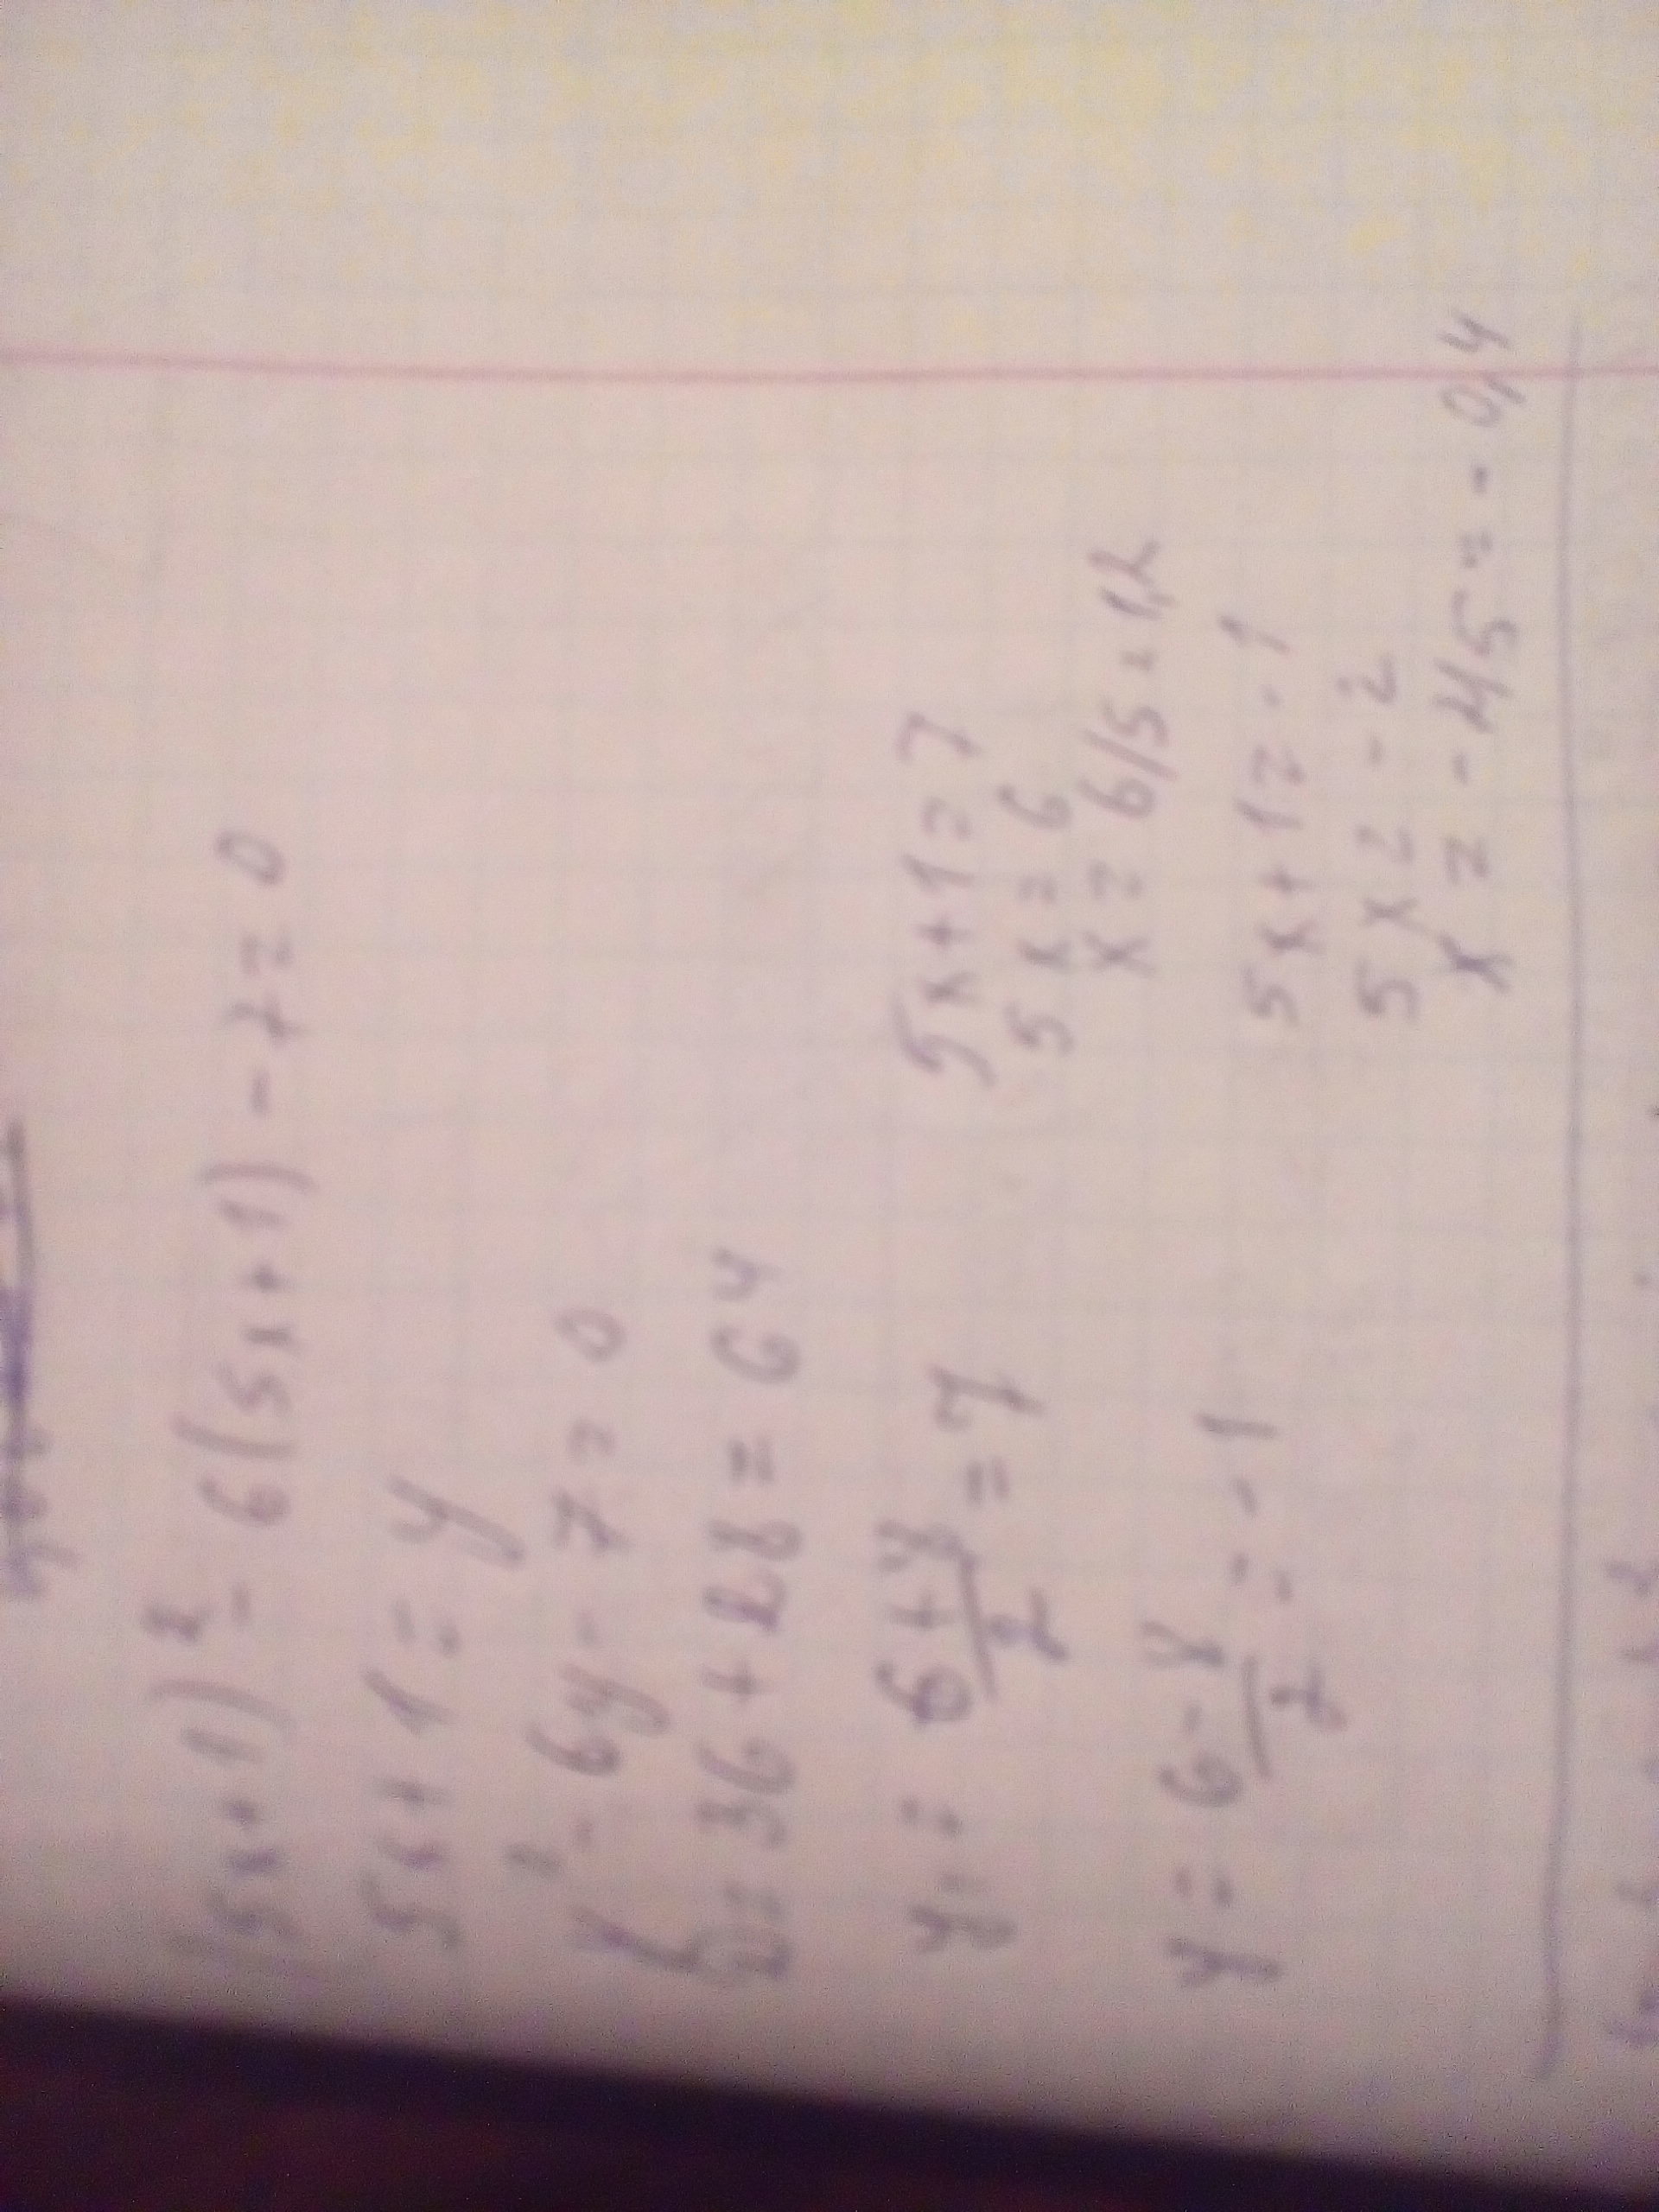 (5x+1)² - 6(5x+1) - 7 = 0
5x + 1 = y
y² - 6y - 7 = 0
D = 36 + 28 = 64
y = 6+8/2 = 7
5x+1=7
5x=6
x = 6/5 = 1,2
y = 6-8/2 = -1
5x+1=-1
5x=-2
x = -2/5 = -0,4